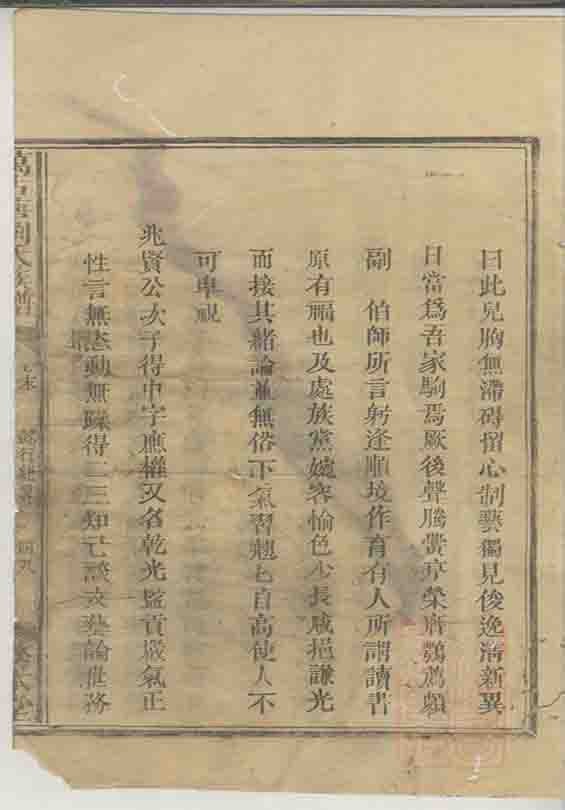 曰此兒胸無滯碍留心制藝獨見俊逸清新異
日當爲吾家駒焉厥後聲騰黌序榮膺鶚薦頗
副 伯師所言躬逢順境作育有人所謂讀書
原有福也及處族黨婉容愉色少長咸挹謙光
而接其緒論並無俗下氣習翹然自高使人不
可卑視
兆賢公次子得中字應權又名乾光監貢嚴氣正
性言無恭動無躁得二三知己談文藝論世務
劉氏族譜